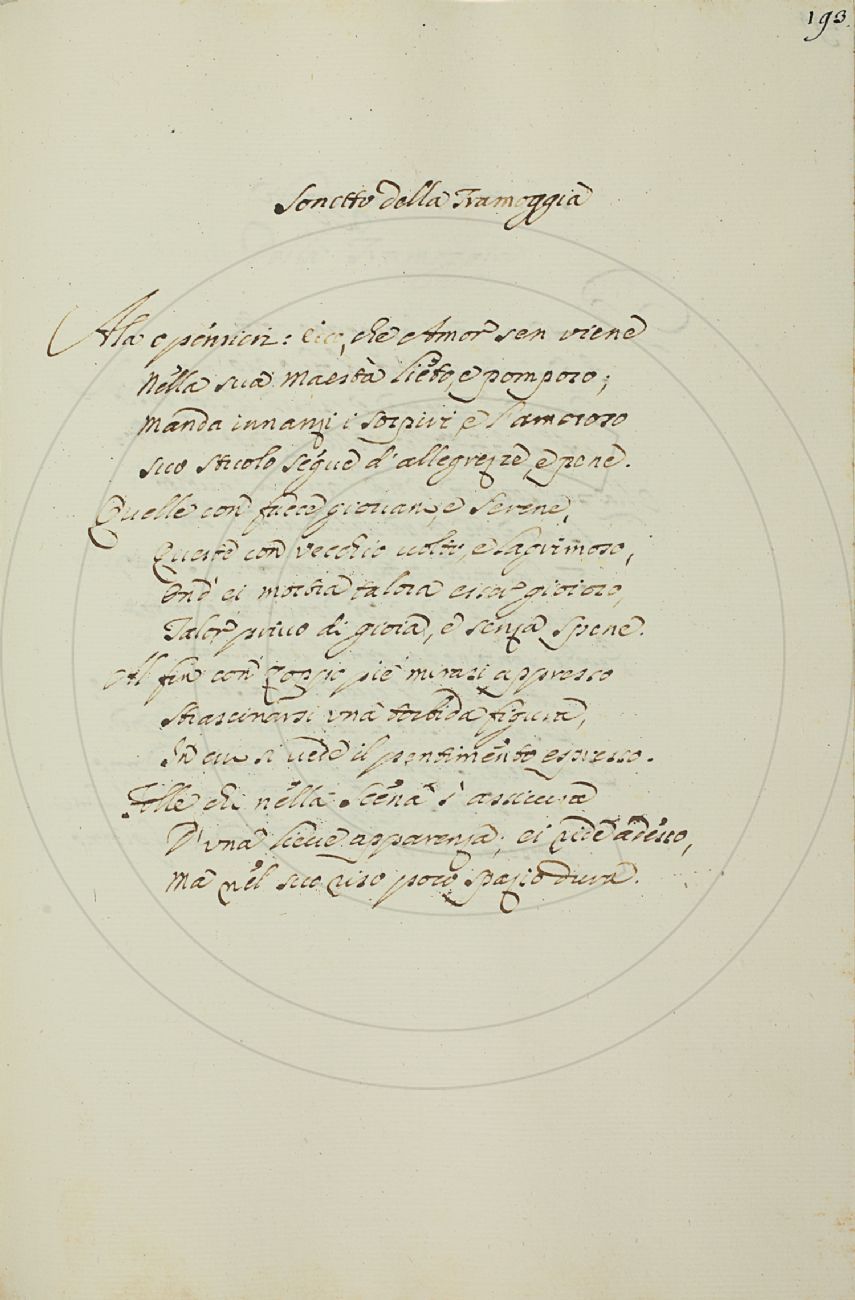 193.
Sonetto della Tramoggia
Ala o pensieri: ecco, che Amor sen viene
Nella sua Maestà lieto, e pomposo;
Manda innanzi i sospiri, e l'amoroso
suo stuolo segue d'allegrezze, e pene.
Quelle con facce giovani, e serene,
Queste con vecchio volto, e lagrimoso,
Ond' ei mostra talora esser gioioso,
Talor privo di gioia, e senza spene.
Al fin con zoppo piè mirasi appresso
Strascinarsi una torbida figura,
In cui si vede il pentimento espresso.
Folle chi nella Scena s'assicura
D'una lieve apparenza, ei ride adesso,
Ma nel suo riso poco spazio dura.